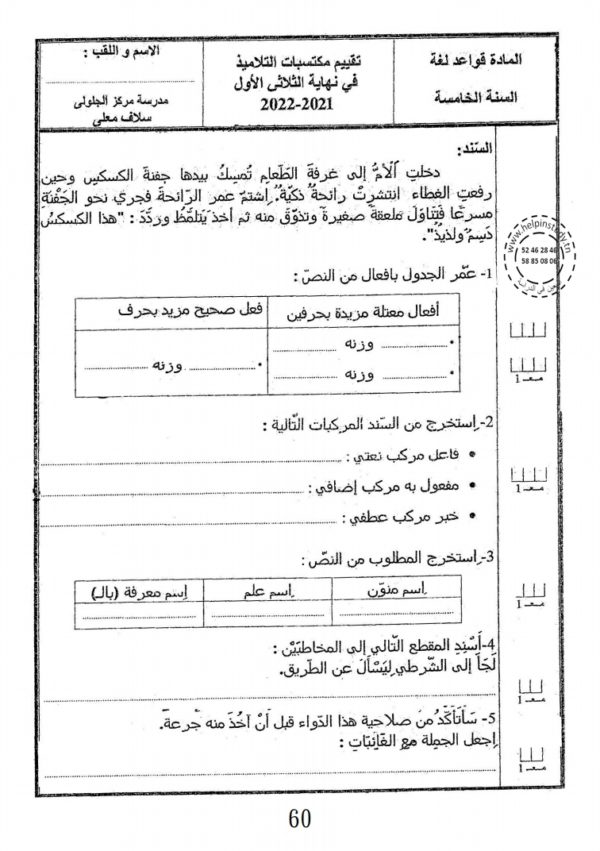 المادة قواعد لغة
السنة الخامسة
تقييم مكتسبات التلاميذ
في نهاية الثلاثي الأول
2022-2021
الاسم و اللقب :
مدرسة مركز الجلولى
سلاف معلي
السّند:
دخلتِ اَلْأمُّ إلى غرفةِ الطّعامِ تُمسِكُ بيدها جفنةَ الكسكسِ وحين
رفعتِ الغطاء انتشرتْ رائحةٌ ذكيّةٌ. اِشتمّ عمر الرّائحةَ فجرى نحو الجَفْنَةِ
مسرعًا فَتَنَاوَلَ ملعقةً صغيرةً وتذوّقَ منه ثم أخذ يَتلمّظُ وردّدَ : "هذا الكسكسُ
دَسِمٌ ولذيذٌ".
www.helpinstudy.tn
52 46 28 46
58 85 08 06
1- عَمّر الجدول بافعال من النصّ :
أفعال معتلة مزيدة بحرفين
فعل صحيح مزيد بحرف
• وزنه
• وزنه
• وزنه
معـ 1
2-اِستخرج من السّند المركبات التّالية :
• فاعل مركب نعتي :
• مفعول به مركب إضافي :
• خبر مركب عطفي :
معـ 1
3-اِستخرج المطلوب من النصّ :
اِسم منوّن
اِسم علم
اِسم معرفة (بالـ)
معـ 1
4-أَسْنِدِ المقطع التّالي إلى المخاطبَيْن :
لَجَأَ إلى الشّرطي لِيَسْأَلَ عن الطّريق.
معـ 1
5- سَأَتَأَكَّدُ من صلاحية هذا الدّواء قبل أَنْ آخُذَ منه جرعة.
اِجعل الجملة مع الغَائِبَاتِ :
معـ 1
60